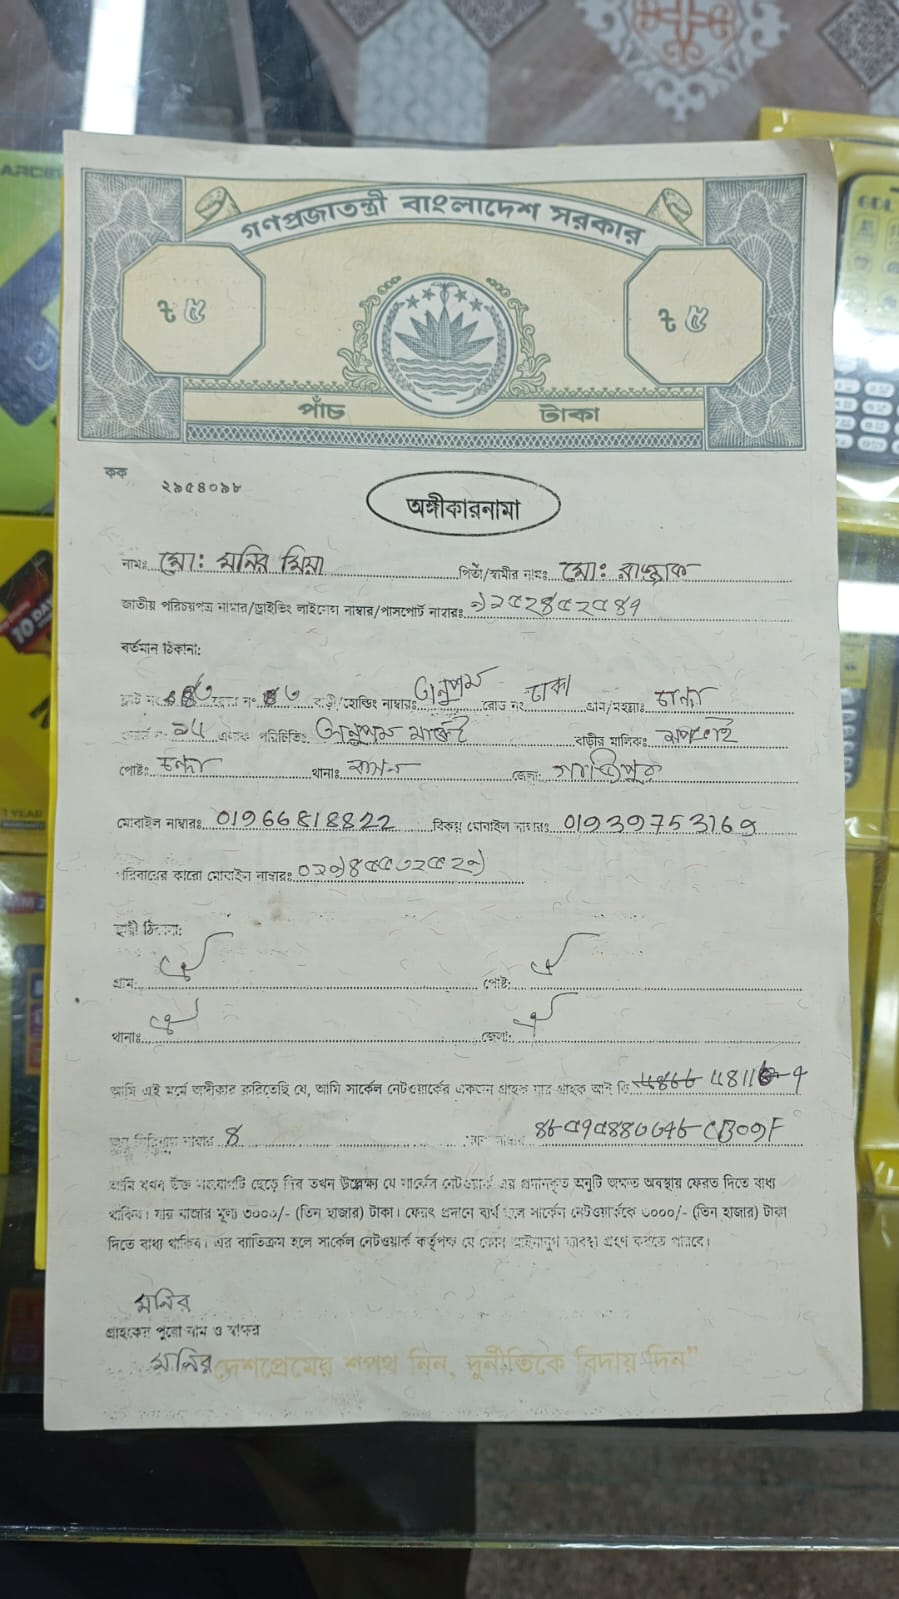 গণপ্রজাতন্ত্রী বাংলাদেশ সরকার
৳ ৫ ৳ ৫
পাঁচ টাকা
কক
২৯৫৪০৯৮
অঙ্গীকারনামা
নামঃ মো: মনির মিয়া পিতা/স্বামীর নামঃ মো: রাজ্জাক
জাতীয় পরিচয়পত্র নাম্বার/ড্রাইভিং লাইসেন্স নাম্বার/পাসপোর্ট নাম্বারঃ
বর্তমান ঠিকানা:
বাড়ী/হোল্ডিং নাম্বারঃ অনুপম রোড নং ঢাকা গ্রাম/মহল্লাঃ
পরিচিতিঃ অনুপম মার্কেট বাড়ীর মালিকঃ
পোষ্টঃ থানাঃ বাসন জেলা: গাজীপুর
মোবাইল নাম্বারঃ 01966818822 বিকল্প মোবাইল নাম্বারঃ 01939753169
পরিবারের কারো মোবাইল নাম্বারঃ
স্থায়ী ঠিকানা:
গ্রাম: পোষ্ট:
থানাঃ জেলা:
আমি এই মর্মে অঙ্গীকার করিতেছি যে, আমি সার্কেল নেটওয়ার্কের একজন গ্রাহক যার গ্রাহক আই ডি
নাম্বার ৪
আমি যখন উক্ত সংযোগটি ছেড়ে দিব তখন উল্লেক্ষ্য যে সার্কেল নেটওয়ার্ক এর প্রদানকৃত অনুটি অক্ষত অবস্থায় ফেরত দিতে বাধ্য
থাকিব। যার বাজার মূল্য ৩০০০/- (তিন হাজার) টাকা। ফেরৎ প্রদানে ব্যর্থ হলে সার্কেল নেটওয়ার্ককে ৩০০০/- (তিন হাজার) টাকা
দিতে বাধ্য থাকিব। এর ব্যতিক্রম হলে সার্কেল নেটওয়ার্ক কর্তৃপক্ষ যে কোন আইনানুগ ব্যবস্থা গ্রহণ করতে পারবে।
মনির
গ্রাহকের পুরো নাম ও স্বাক্ষর
মনির দেশপ্রেমের শপথ নিন, দুর্নীতিকে বিদায় দিন"